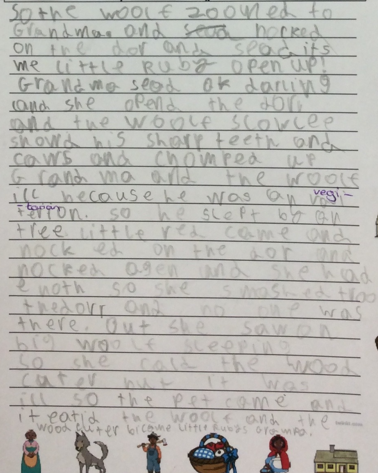 So the woolf zoomed to
Grandmas and nocked
on the dor and sead its
me little Ruby open up!
Grandma sead ok darling
and she opend the dorr
and the woolf slowlee
showd his sharp teeth and
caws and chomped up
Grandma and the woolf
ill because he was an vegi-
-tarian. so he slept by an
tree. little red came and
nocked on the dor and
nocked agen and she had
enoth so she smashed throo
thedorr and no one was
there. but she saw on
big woolf sleeping
so she cald the wood
cuter but it was
ill so the pet came and
it eatid the woolf and the
wood cuter bicame little Rubys grampa.